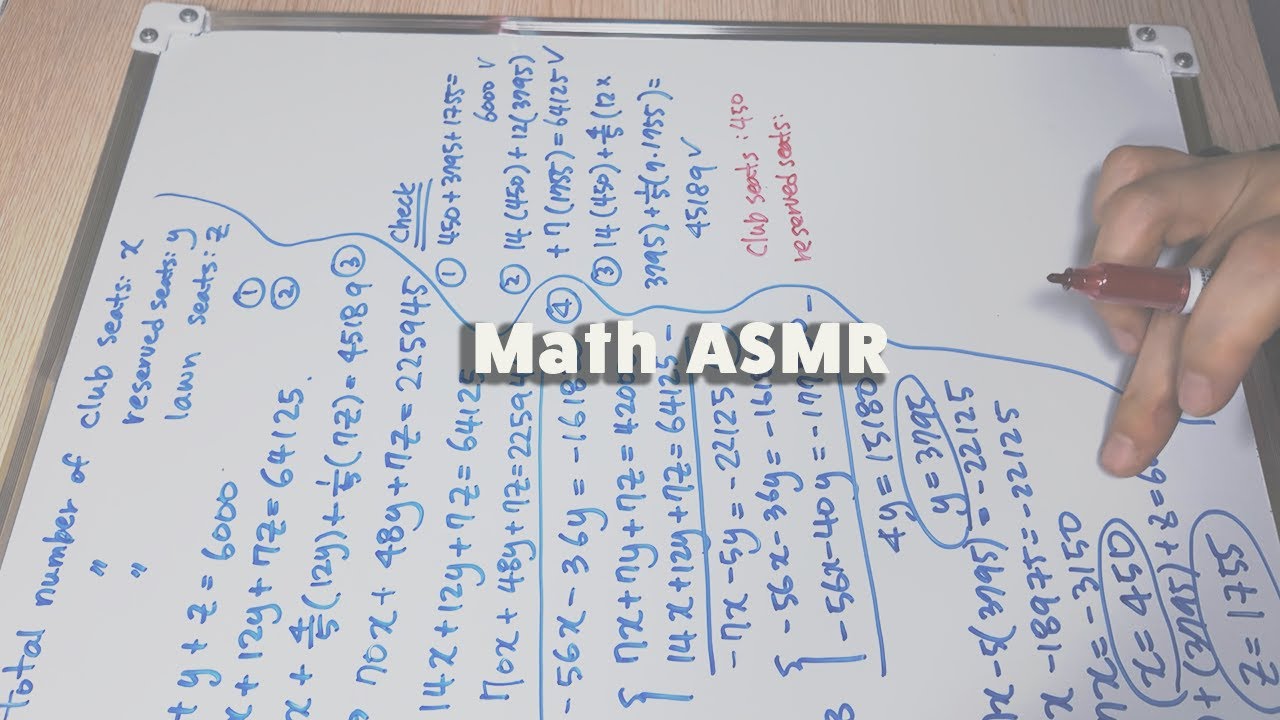 Total number of club seats: x
" reserved seats: y
" lawn seats: z
+ y + z = 6000 ①
x + 12y + 7z = 64125 ②
x + 4/5 (12y) + 1/5 (7z) = 45189 ③
70x + 48y + 7z = 225945
14x + 12y + 7z = 64125
70x + 48y + 7z = 22594
-56x - 36y = -1618 ④
7x + 7y + 7z = 4200
14x + 12y + 7z = 64125 -
-7x - 5y = -22125
-56x - 36y = -161
-56x - 40y = -177 -
4y = 15180
y = 3795
x - 5(3795) = -22125
x - 18975 = -22125
7x = -3150
x = 450
+ (3795) + z = 6
z = 1755
Check
① 450 + 3795 + 1755 =
6000 ✓
② 14(450) + 12(3795)
+ 7(1755) = 64125 ✓
③ 14(450) + 4/5 (12×
3795) + 1/5 (7·1755) =
45189 ✓
club seats: 450
reserved seats:
Math ASMR